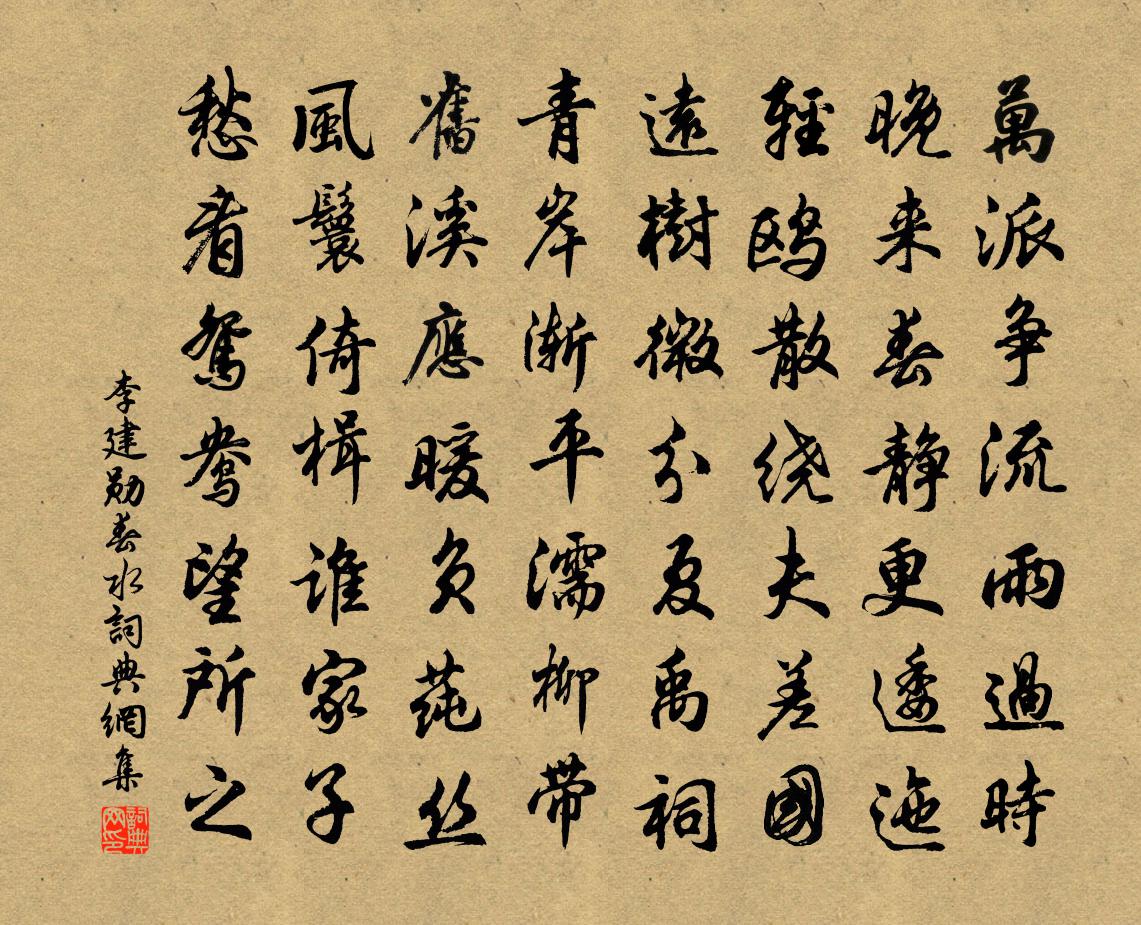 萬派争流雨過時
晚来春静更逶迤
輕鸥散绕夫差國
遠樹微分夏禹祠
青岸漸平濡柳带
舊溪應暖負莼丝
風鬟倚楫誰家子
愁看鸳鸯望所之
李建勋春水詞典網集
詞典网印